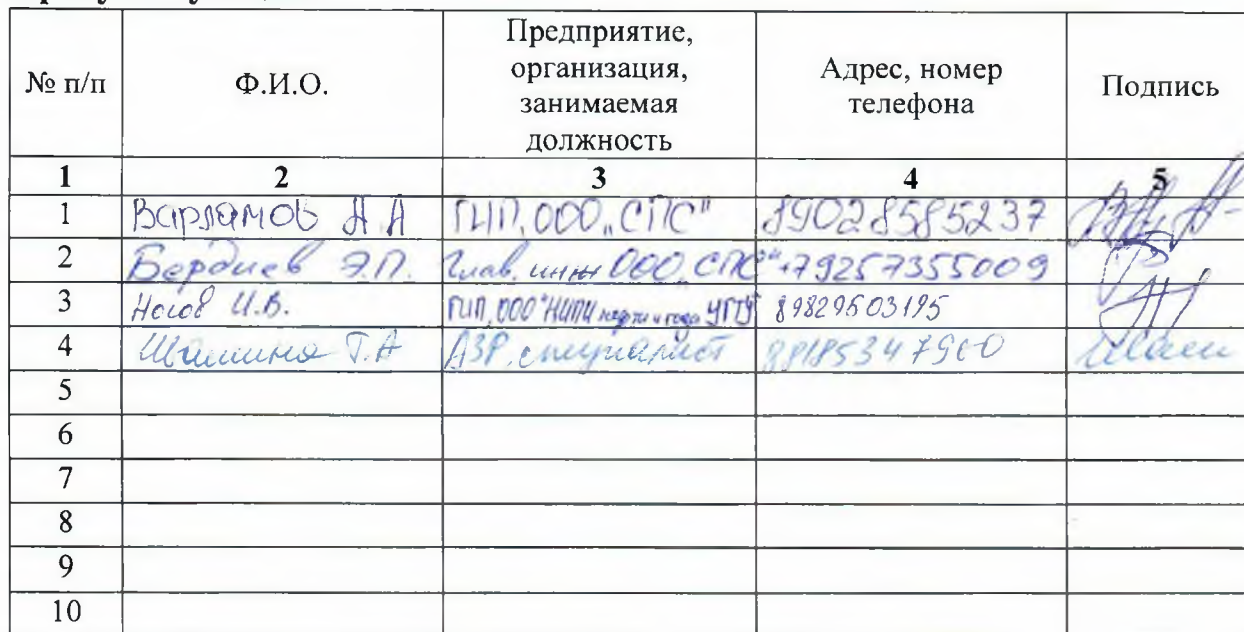 № п/п Ф.И.О. Предприятие, организация, занимаемая должность Адрес, номер телефона Подпись
1 2 3 4 5
1 Варламов А.А ГИП, ООО „СПС" 89028585237
2 Бердиев Э.П. Глав. инж ООО „СПС" +79257355009
3 Носов И.В. ГИП, ООО "НИПИ нефти и газа УГТУ" 89829503195
4 Т.А АЗР, специалист 88185347960
5
6
7
8
9
10